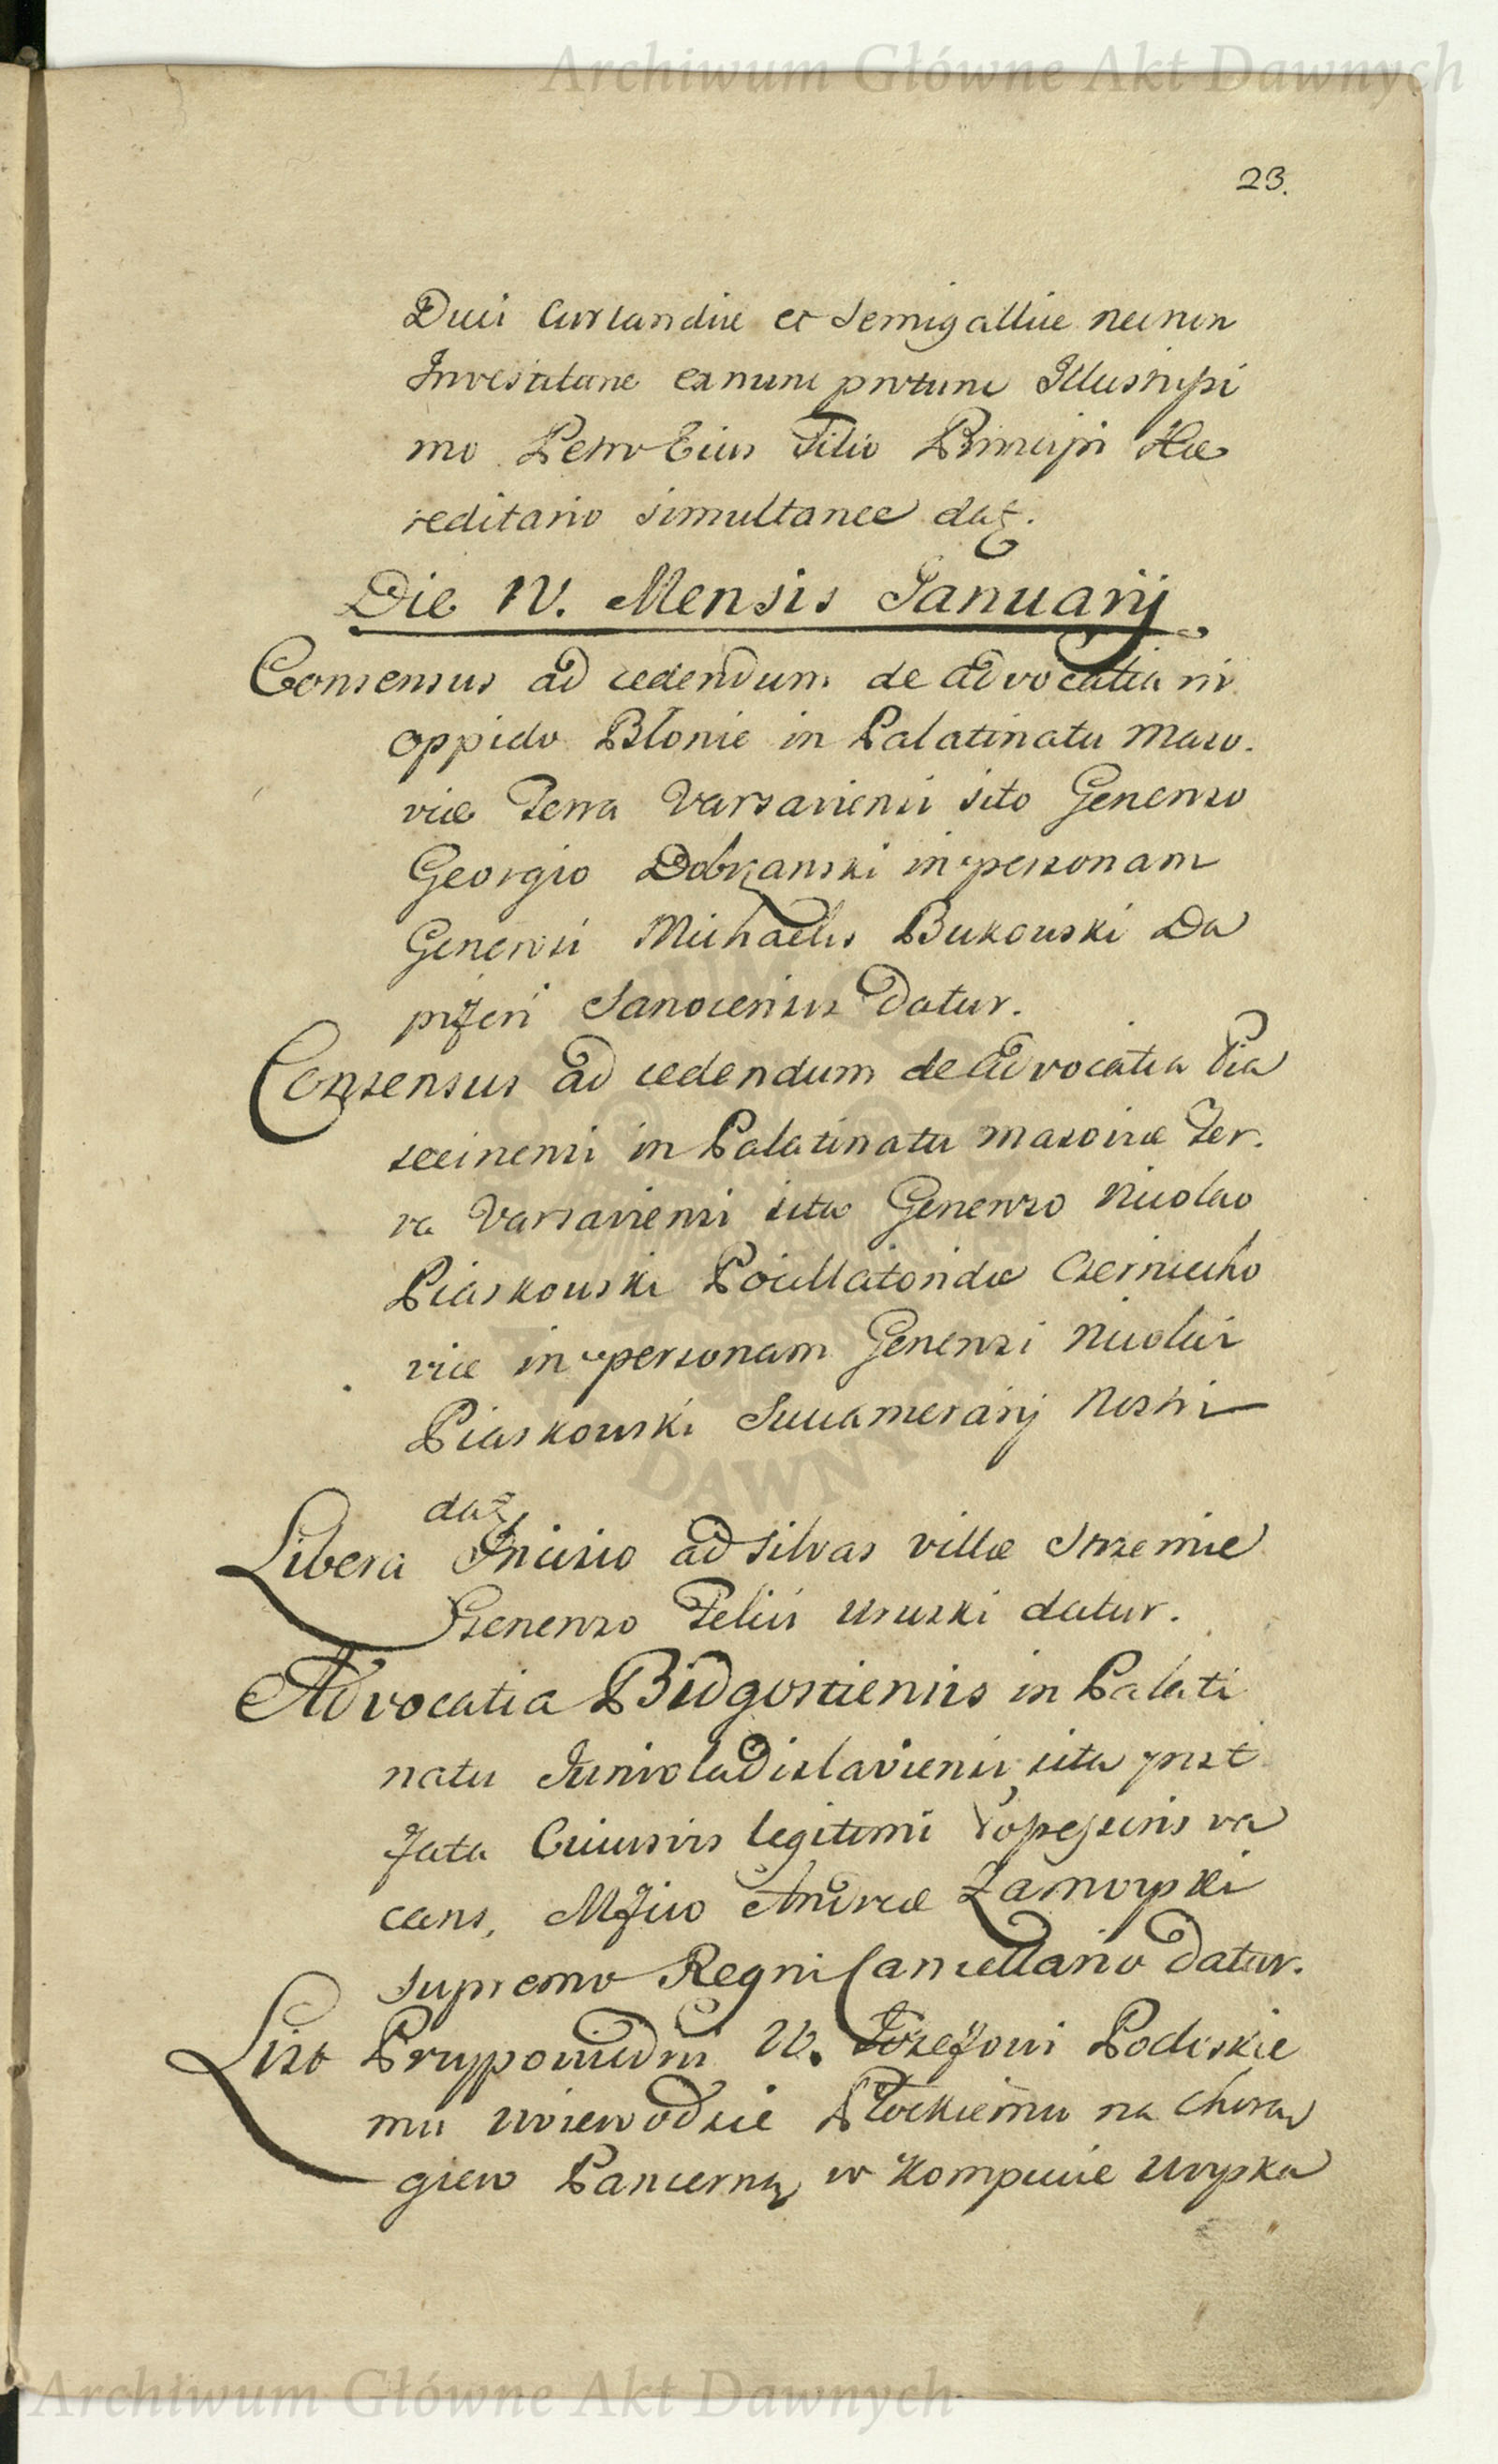 Archiwum Główne Akt Dawnych
23.
Duci Curlandiæ et Semigalliæ necnon
Investituræ ex nunc Illustrissi
mo Petro Eius Filio Principi Hæ
reditario simultanee dat.
Die IV. Mensis Januarij
Consensus ad cedendum de Advocatia in
oppido Błonie in Palatinatu Maso.
viæ Terra Varsaviensi sito Generoso
Georgio Dobrzanski in personam
Generosi Michaelis Bukowski Da
piferi Sanocensis datur.
Consensus ad cedendum de Advocatia Pia
secinensi in Palatinatu Masoviæ Ter.
ra Varsaviensi sita Generoso Nicolao
Piaskowski Pocillatoridæ Czerniecho
viæ in personam Generosi Nicolai
Piaskowski Succamerarij Nostri
dat
Libera Incisio ad silvas villæ Strzemie
Generoso Felici Uruski datur.
Advocatia Bidgostiensis in Palati
natu Juniwladislaviensi sita post
fata Cuiusvis legitimi Possessoris va
cans, Mfico Andreæ Zamoyski
supremo Regni Cancellario datur.
List Przypowiedni W. Jozefowi Podoskie
mu Woiewodzie Płockiemu na Chorą
giew Pancerną w Kompucie Woyska
Archiwum Główne Akt Dawnych